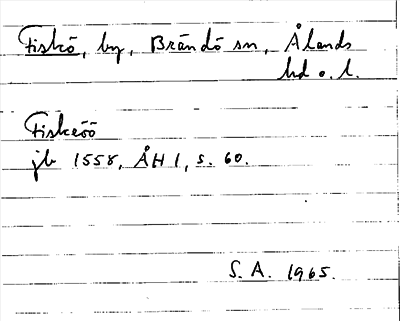 Fiskö, by, Brändö sn, Ålands
hd o. l.
Fiskeöö
jb 1558, ÅH 1, s. 60.
S. A. 1965.